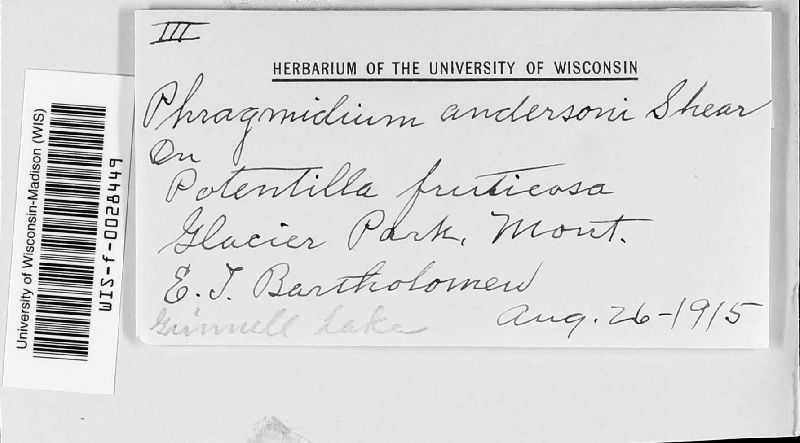 III
HERBARIUM OF THE UNIVERSITY OF WISCONSIN
Phragmidium andersoni Shear
On
Potentilla fruticosa
Glacier Park, Mont.
E. T. Bartholomew
Grinnell Lake
Aug. 26-1915
University of Wisconsin-Madison (WIS)
WIS-f-0028449